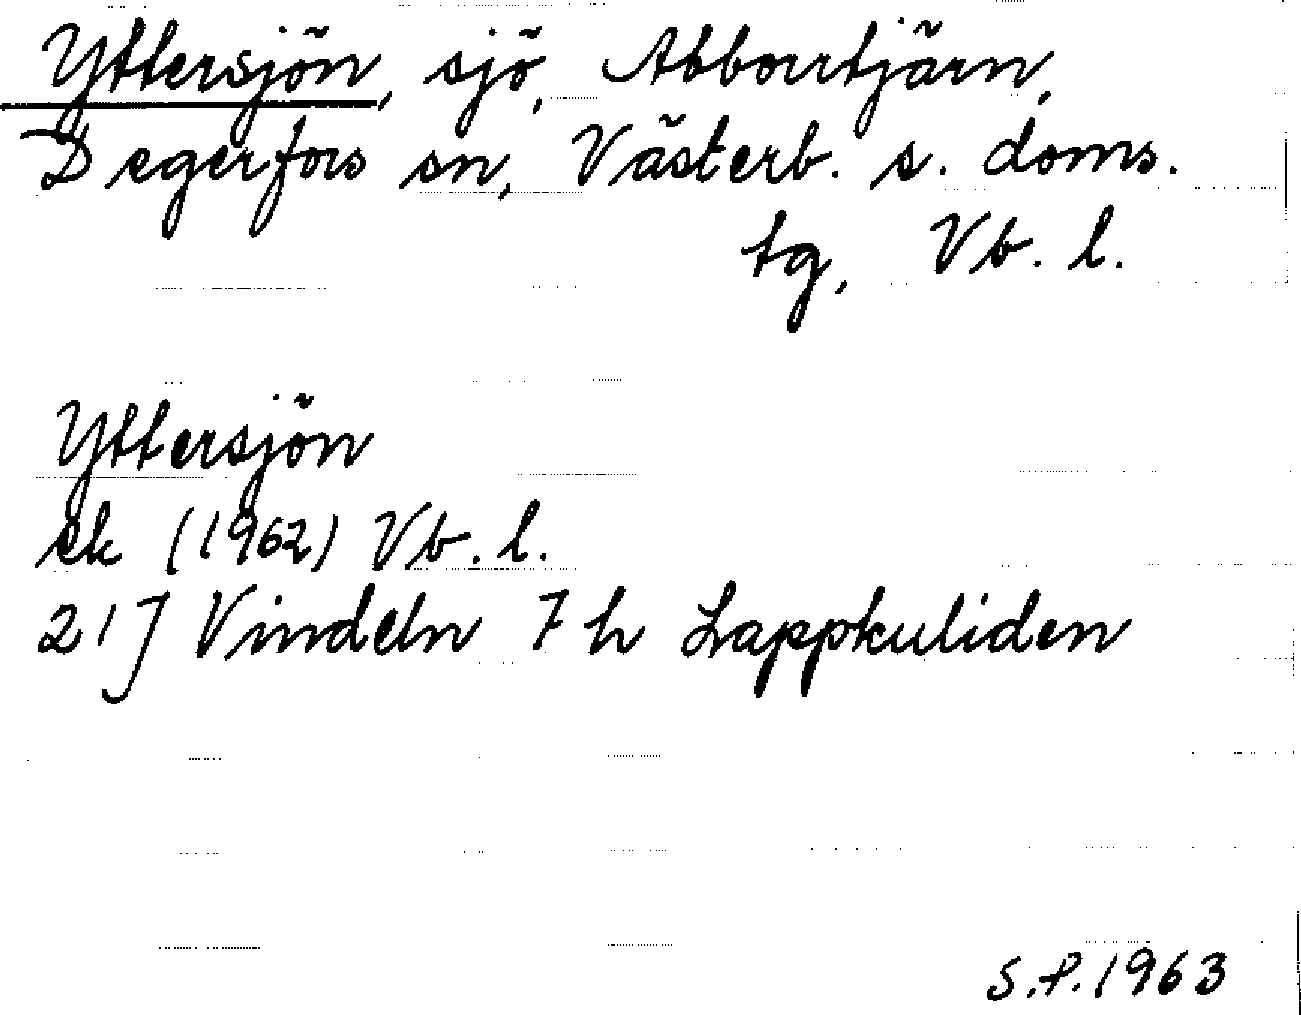 Yttersjön, sjö, Abborrtjärn,
Degerfors sn, Västerb. s. doms.
tg, Vb. l.
Yttersjön
ek (1962) Vb. l.
21J Vindeln 7 h Lappkuliden
S.P. 1963